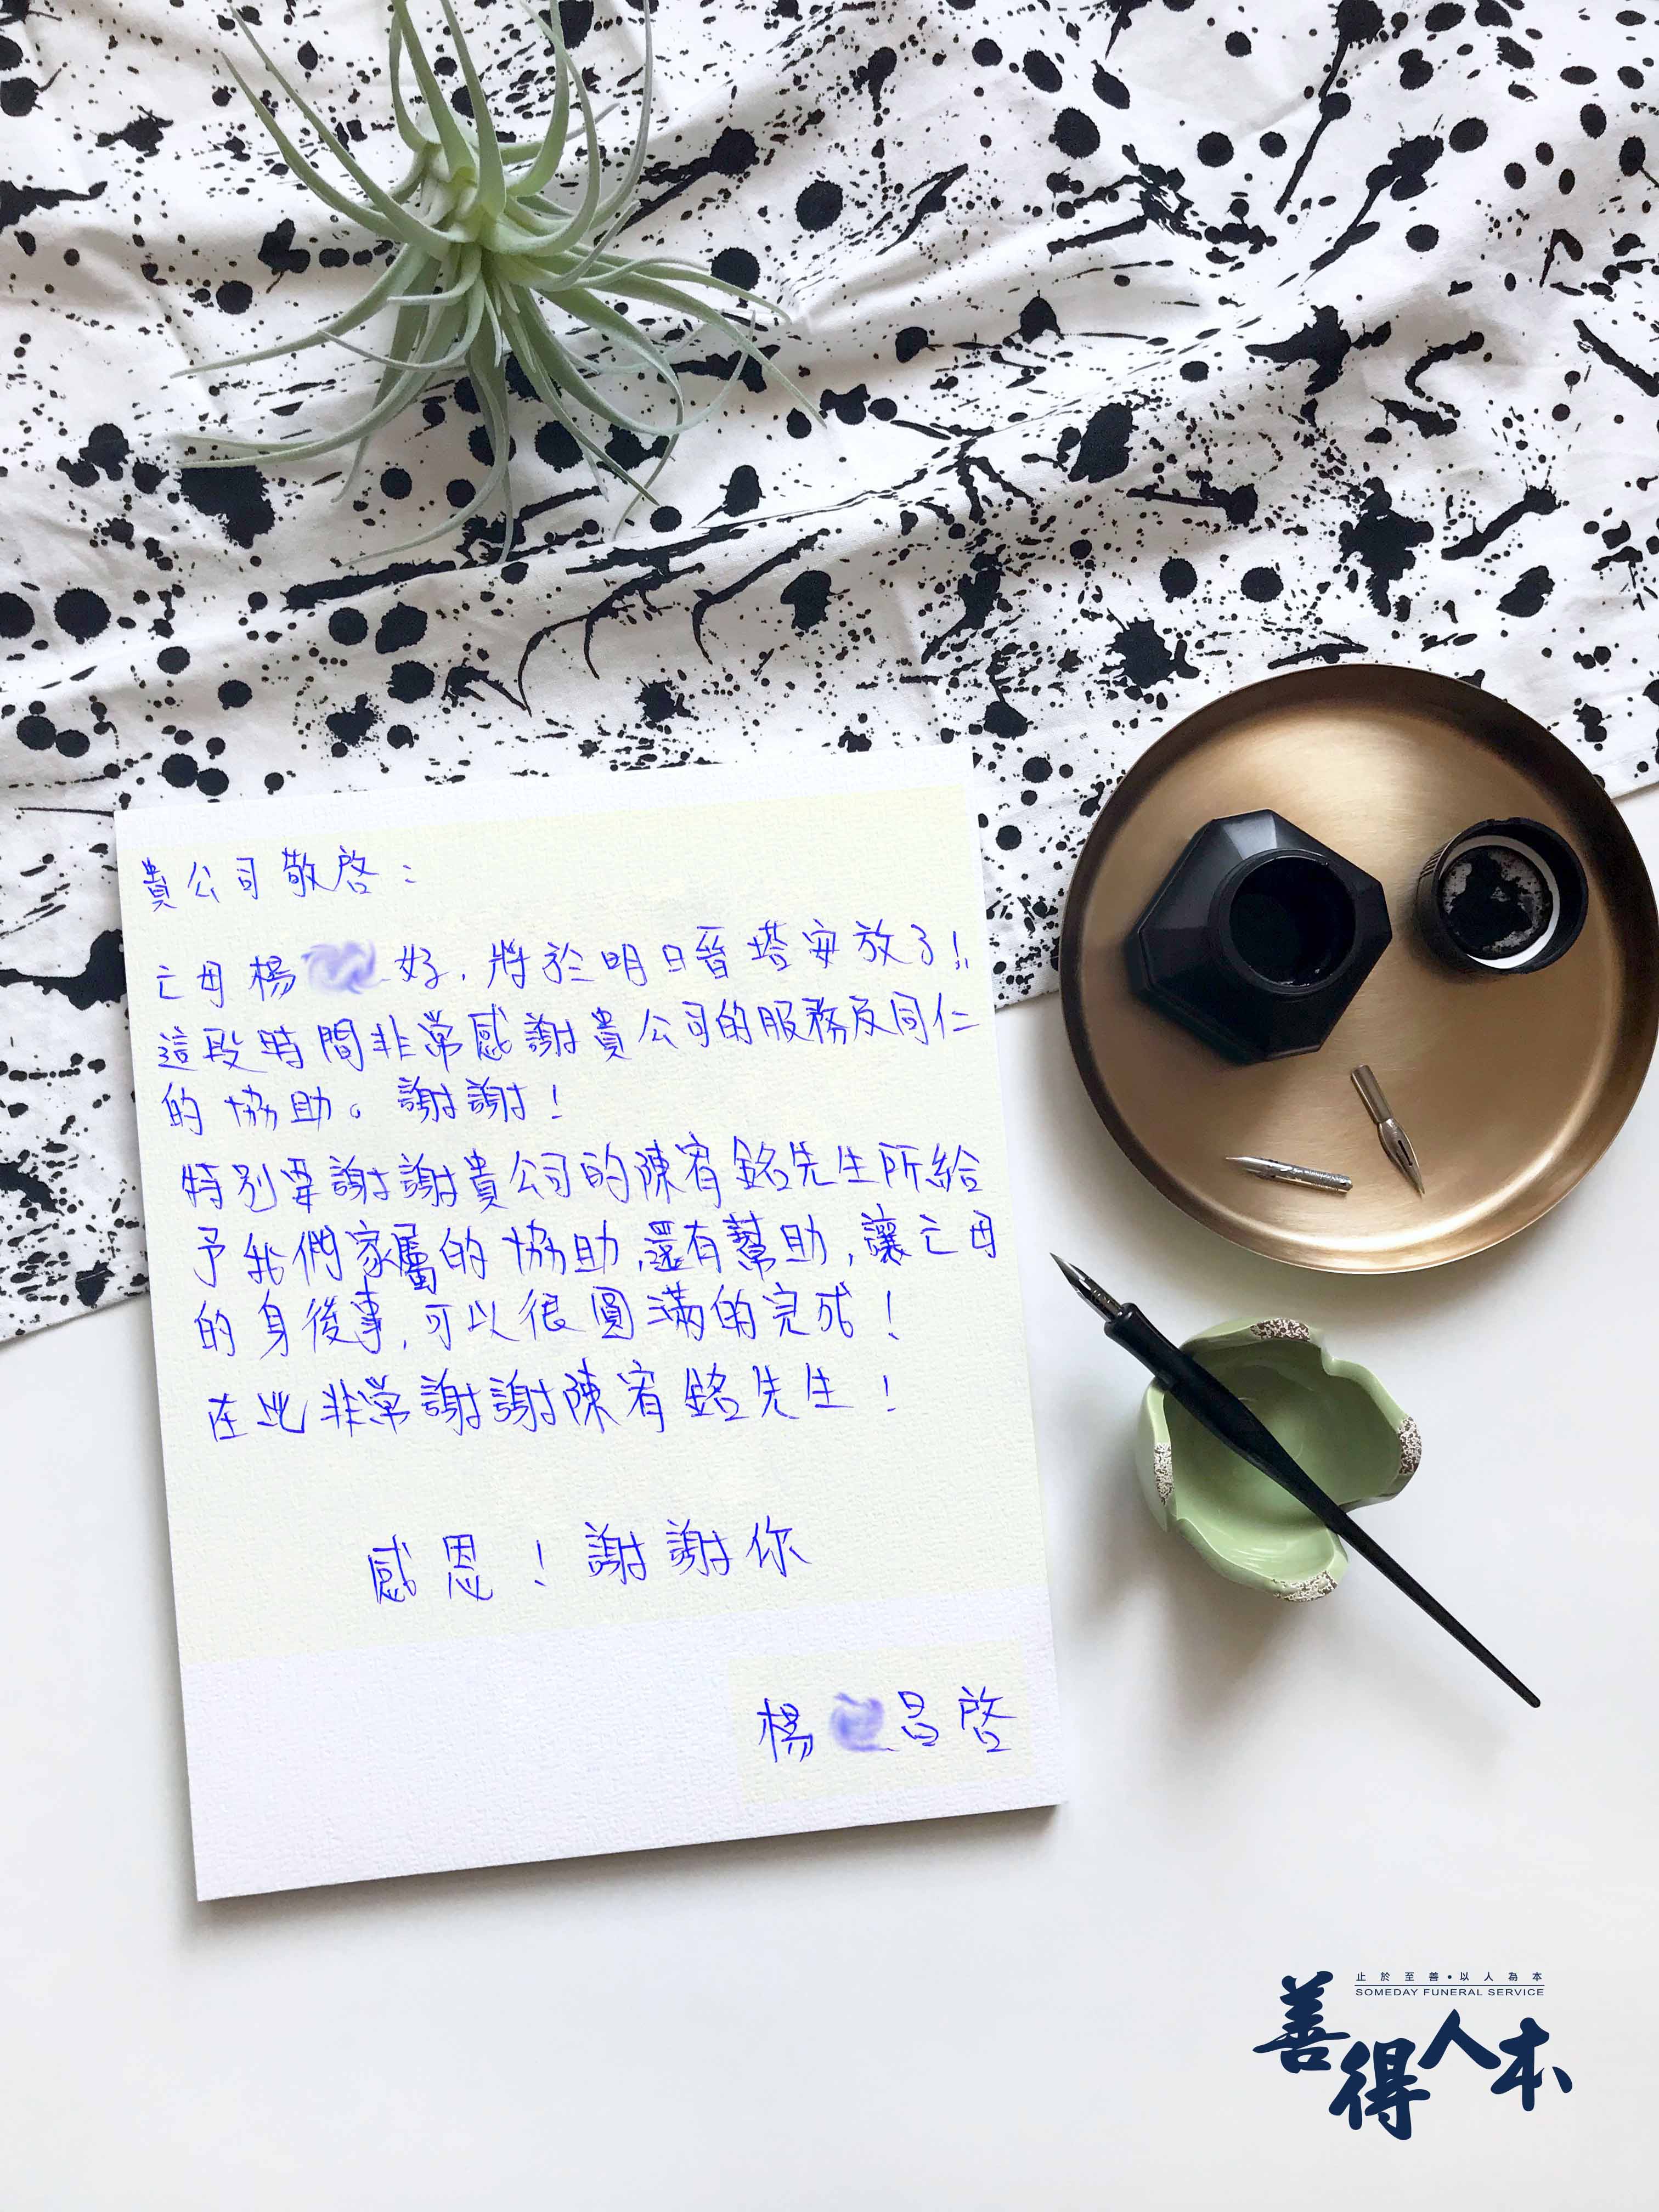 貴公司敬啓：
亡母楊 好，將於明日晉塔安放了!!
這段時間非常感謝貴公司的服務及同仁
的協助。謝謝！
特別要謝謝貴公司的陳宥銘先生所給
予我們家屬的協助，還有幫助，讓亡母
的身後事，可以很圓滿的完成！
在此非常謝謝陳宥銘先生！
感恩！謝謝你
楊 昌啓
止於至善•以人為本
SOMEDAY FUNERAL SERVICE
善得人本